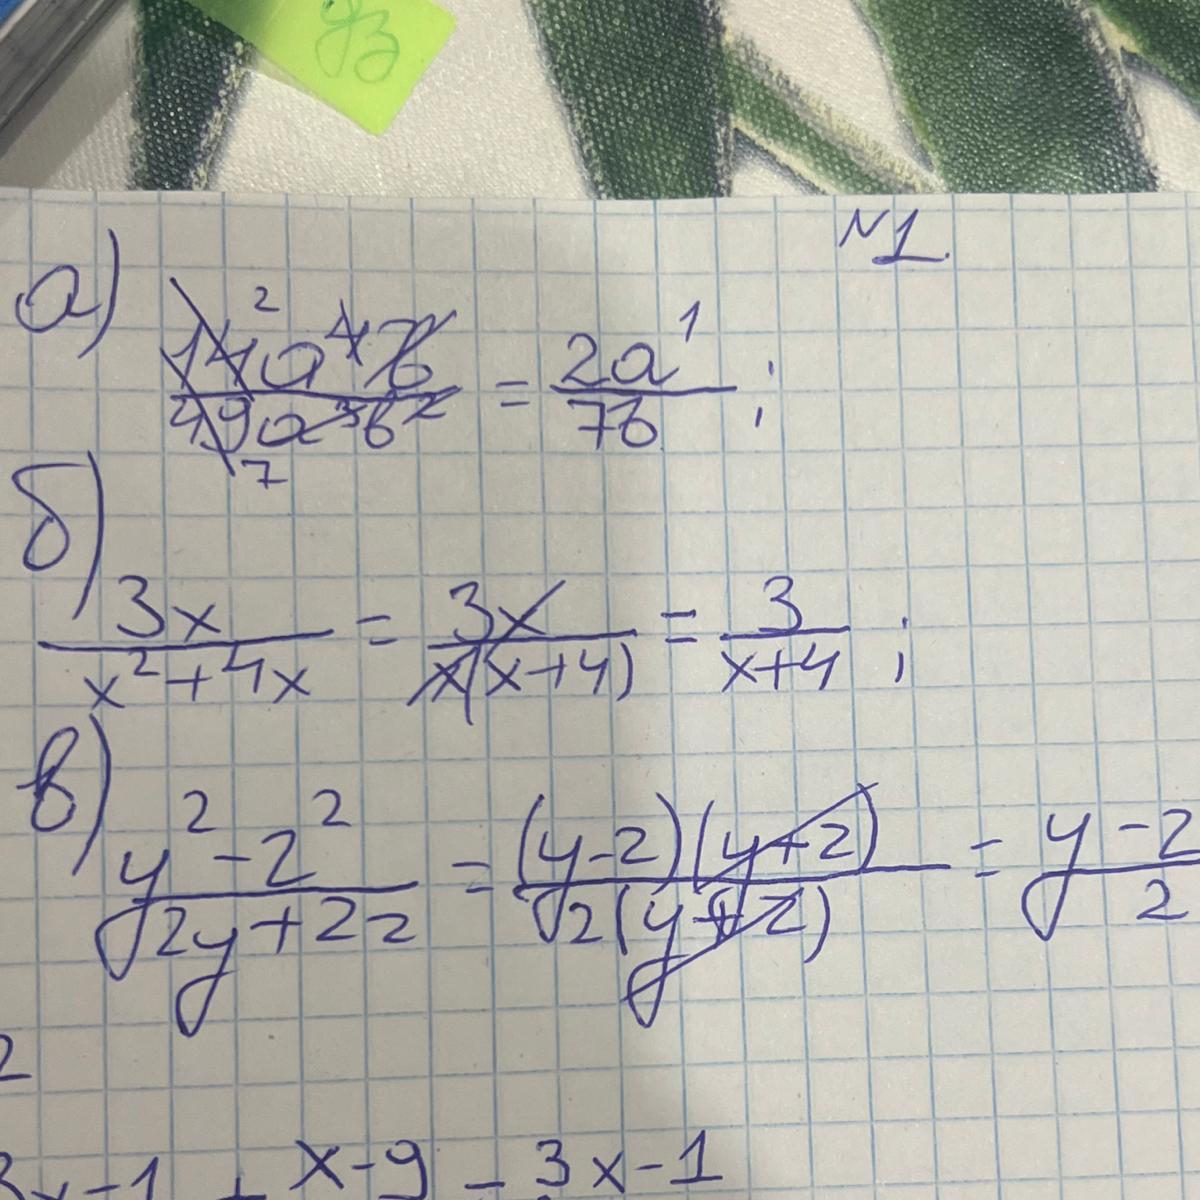 уз
N1
а) 14²a⁴b / 49₇a³b² = 2a¹ / 7b ;
б) 3x / x²+4x = 3x / x(x+4) = 3 / x+4 ;
в) y²-z² / 2y+2z = (y-z)(y+z) / 2(y+z) = y-z / 2
2
3x-1 + x-9 - 3x-1